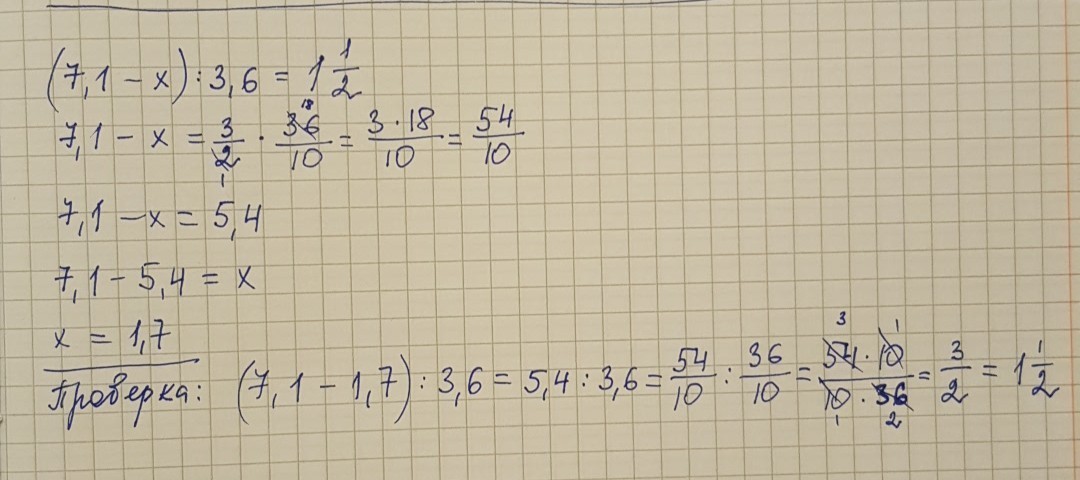 (7,1 - x) : 3,6 = 1 1/2
7,1 - x = 3/2 · 36/10 = 3·18/10 = 54/10
7,1 - x = 5,4
7,1 - 5,4 = x
x = 1,7
Проверка: (7,1 - 1,7) : 3,6 = 5,4 : 3,6 = 54/10 : 36/10 = 54·10/10·36 = 3/2 = 1 1/2